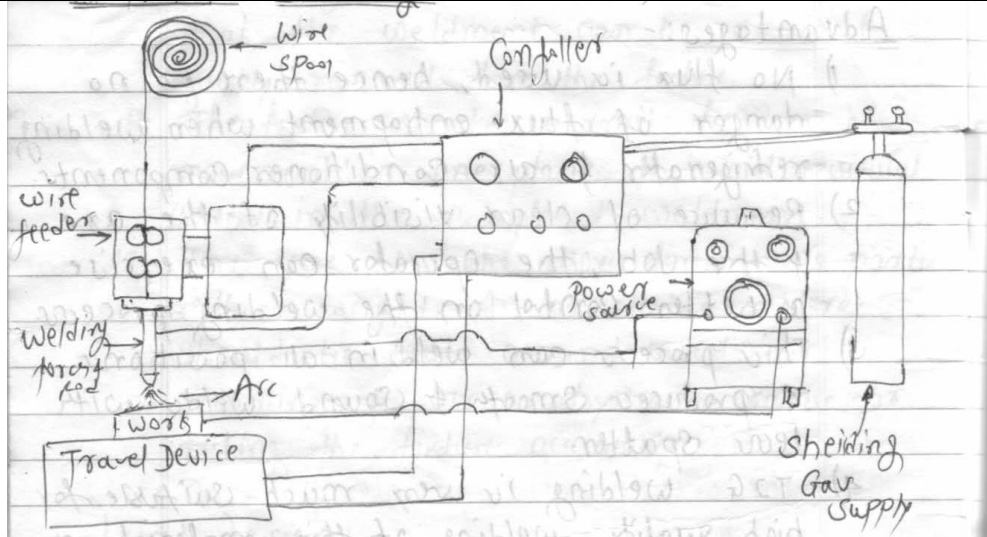 Wire
spool
Confaller
Wire
feeder
Power
source
Welding
Arc
Work
Travel Device
Sheilding
Gas
Supply